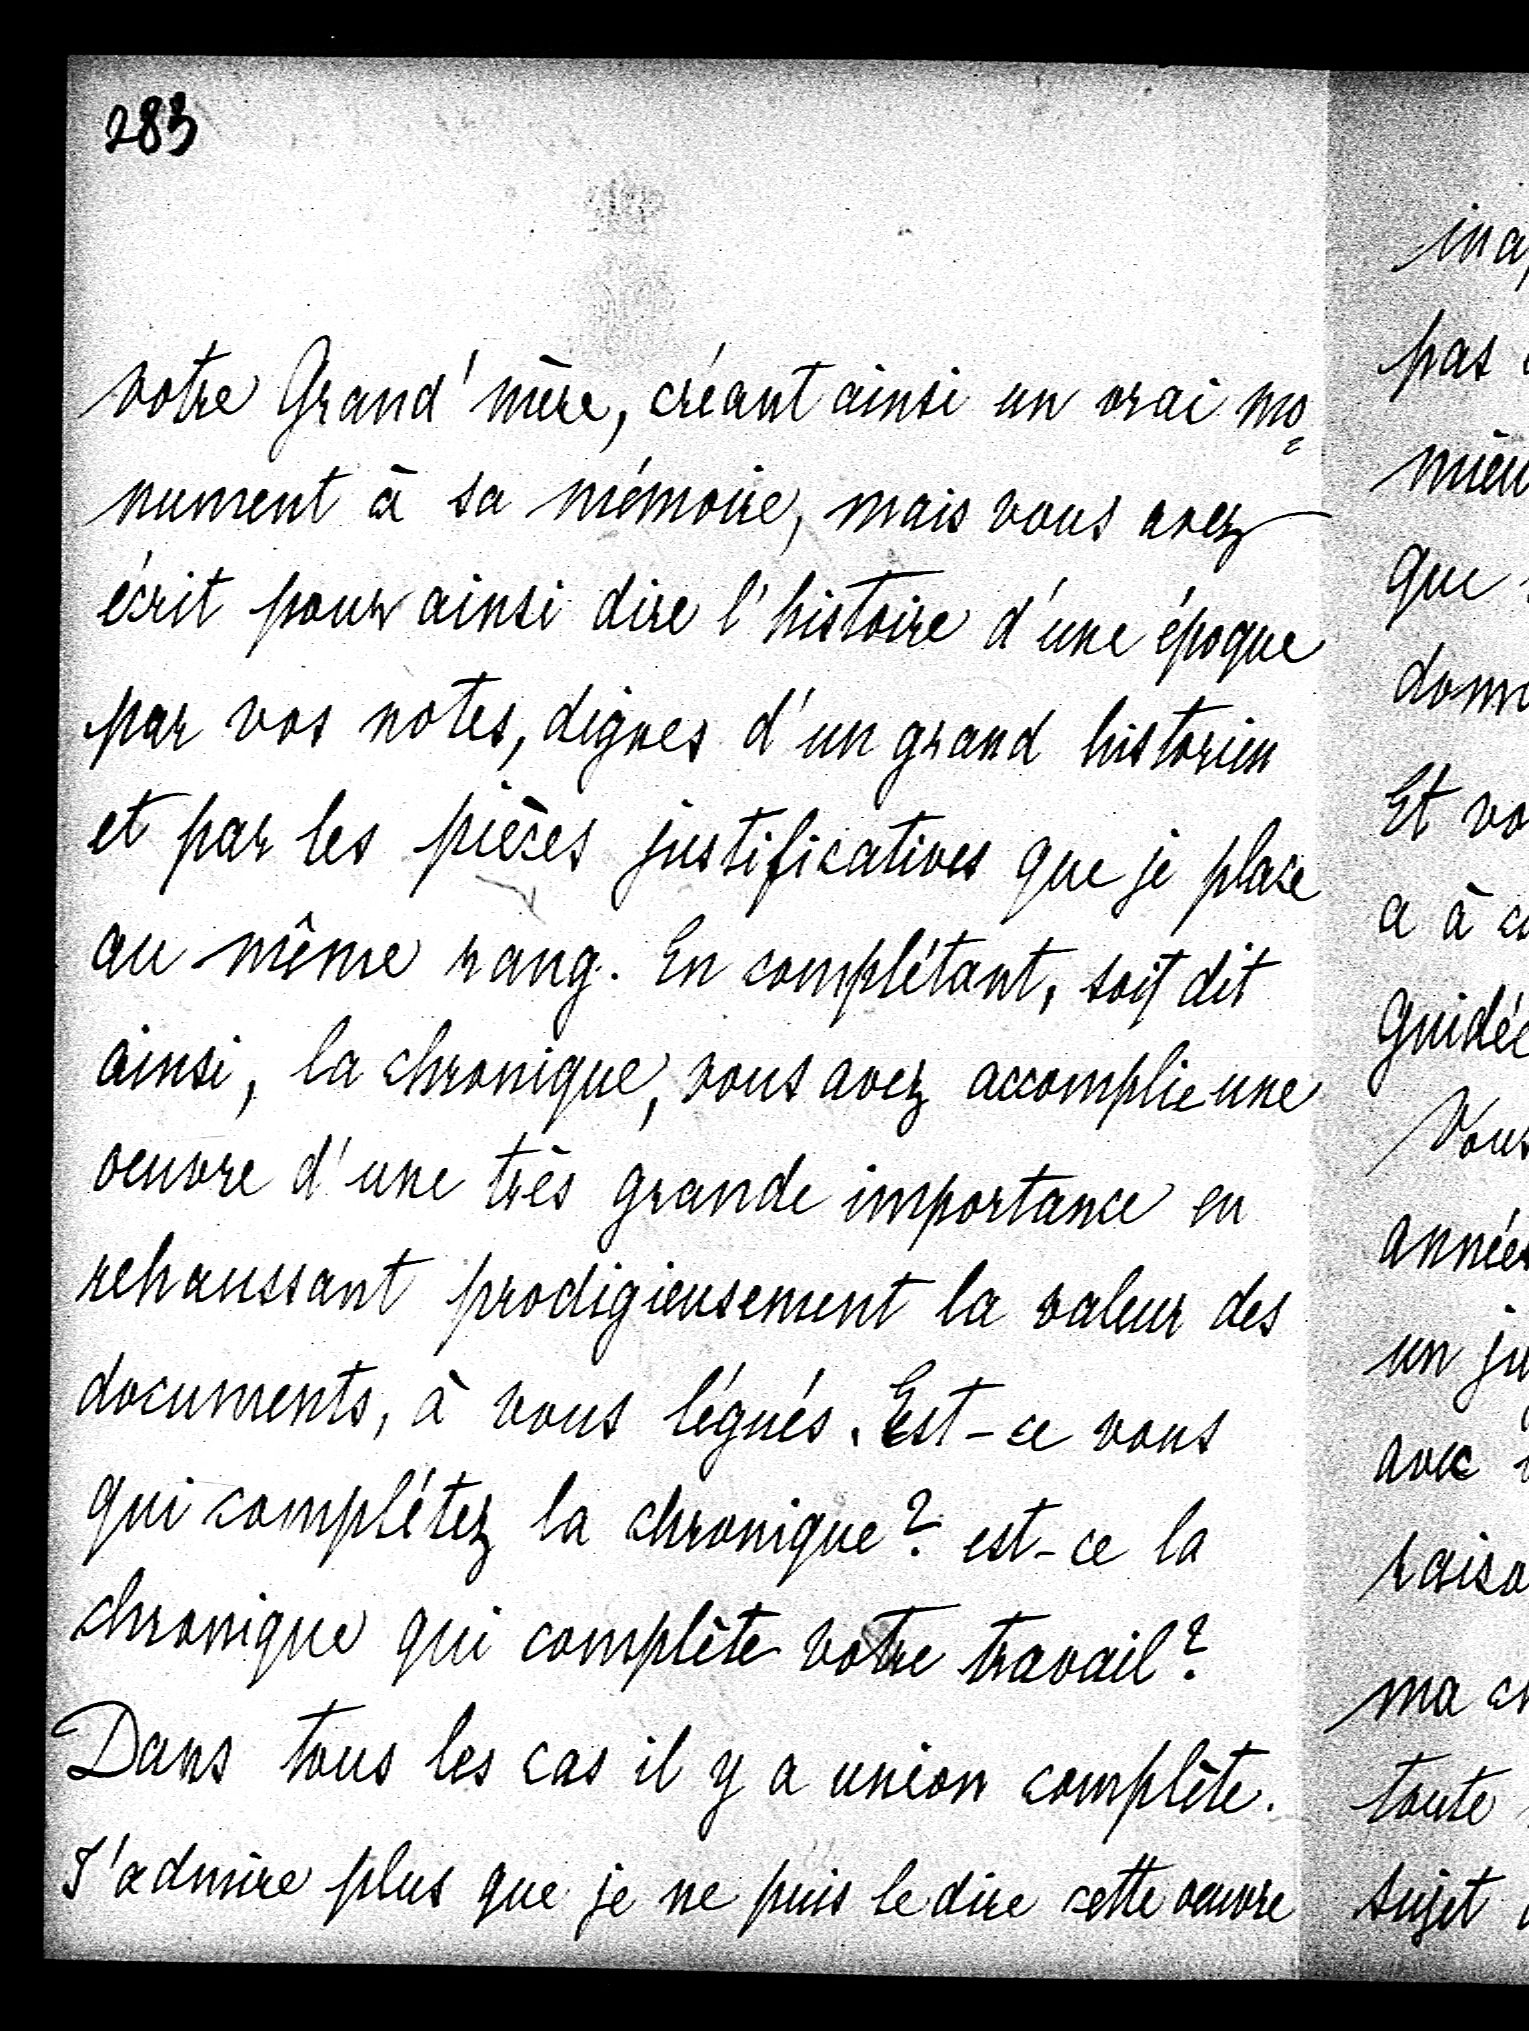 283
votre Grand'mère, créant ainsi un vrai mo=
nument à sa mémoire, mais vous avez
écrit pour ainsi dire l'histoire d'une époque
par vos notes, dignes d'un grand historien
et par les pièces justificatives que je place
au même rang. En complétant, soit dit
ainsi, la chronique, vous avez accomplie une
oeuvre d'une très grande importance en
rehaussant prodigieusement la valeur des
documents, à vous légués. Est-ce vous
qui complétez la chronique? est-ce la
chronique qui complète votre travail?
Dans tous les cas il y a union complète.
J'admire plus que je ne puis le dire cette oeuvre
pas
que
Et vo
a à
guidée
Vous
années
un
avec
ma
toute
sujet